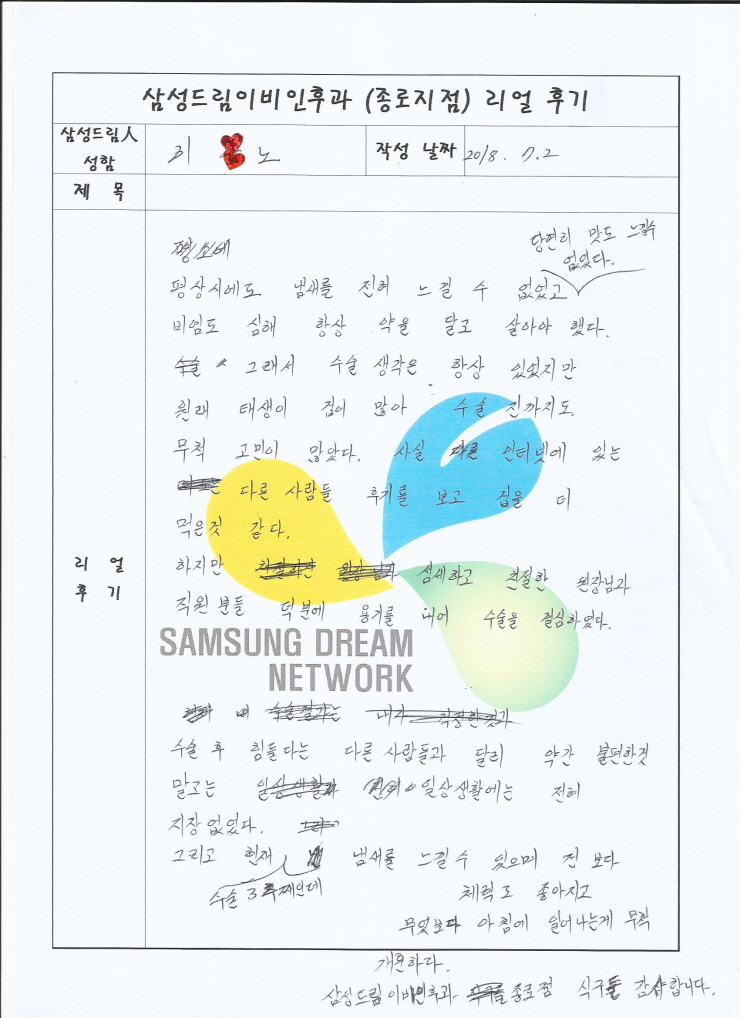 삼성드림이비인후과 (종로지점) 리얼 후기
삼성드림人 성함
노
작성 날짜
2018. 7. 2
제 목
리 얼 후 기
평소에
당연히 맛도 느낄수
없었다.
평상시에도 냄새를 전혀 느낄 수 없었고
비염도 심해 항상 약을 달고 살아야 했다.
수술 그래서 수술 생각은 항상 있었지만
원래 태생이 겁이 많아 수술 전까지도.
무척 고민이 많았다. 사실 다른 인터넷에 있는
다른 사람들 후기를 보고 겁을 더
먹은것 같다.
하지만 친절하신 원장님과 섬세하고 친절한 원장님과
직원분들 덕분에 용기를 내어 수술을 결심하였다.
SAMSUNG DREAM
NETWORK
내 수술결과는 내가 걱정한것과
수술 후 힘들다는 다른 사람들과 달리 약간 불편한것
말고는 일상생활에 전혀 일상생활에는 전혀
지장 없었다. 그리고
그리고 현재 냄새를 느낄수 있으며 전 보다
수술 3주째인데
체력도 좋아지고
무엇보다 아침에 일어나는게 무척
개운하다.
삼성드림이비인후과 종로점 식구들 감사합니다.